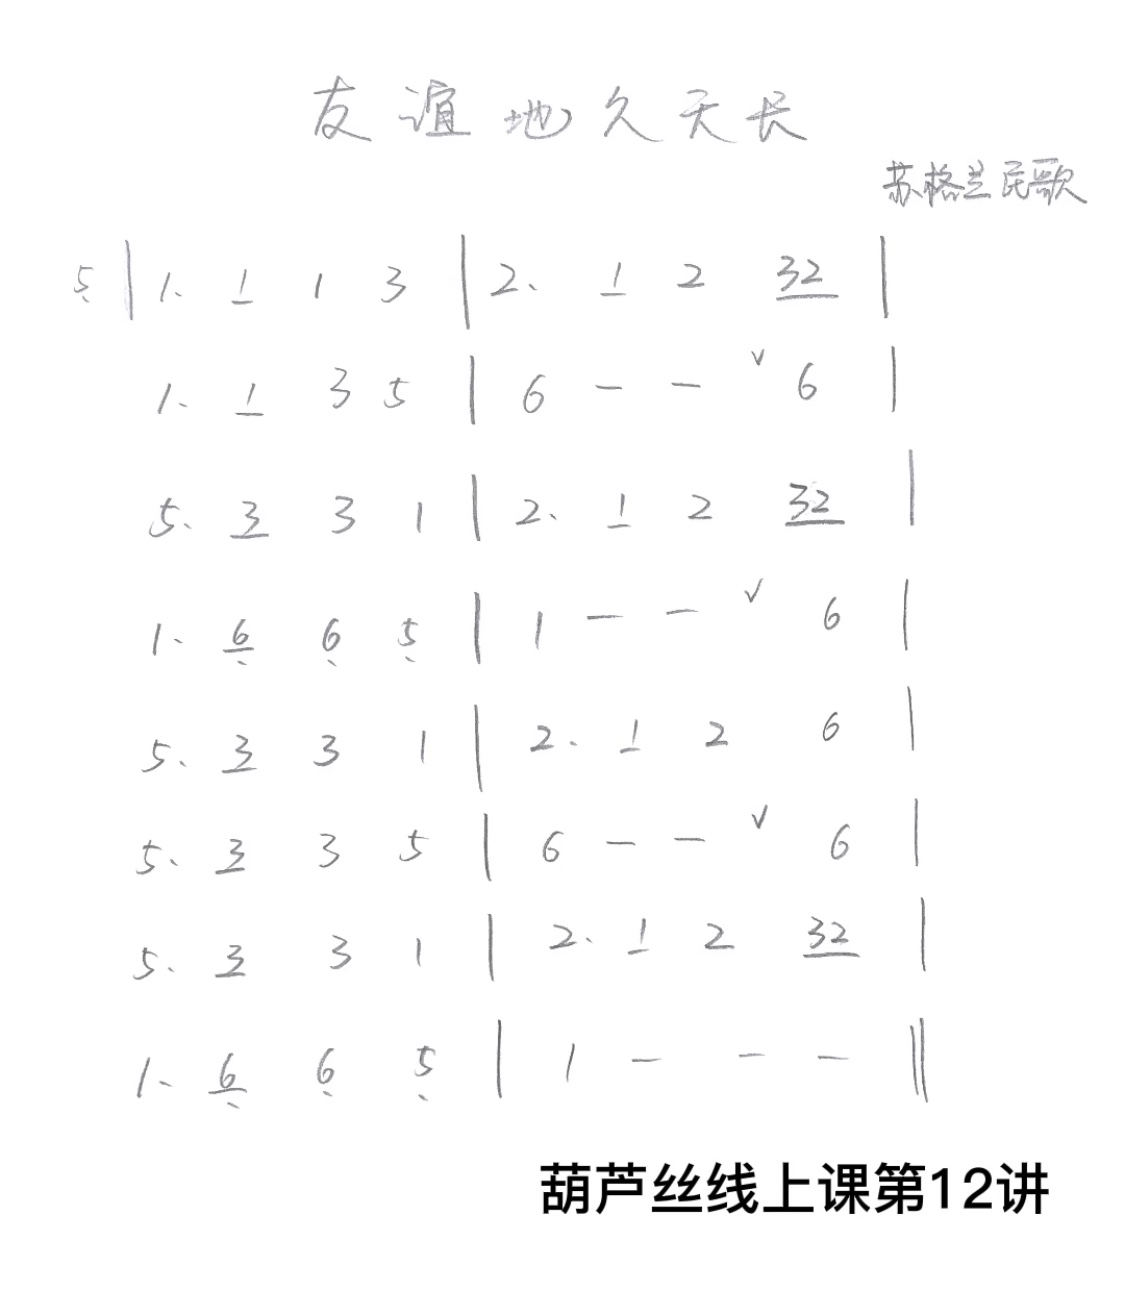 友谊地久天长
苏格兰民歌
5̣ | 1. 1̲ 1 3 | 2. 1̲ 2 3̲2̲ |
1. 1̲ 3 5 | 6 — — ∨ 6 |
5. 3̲ 3 1 | 2. 1̲ 2 3̲2̲ |
1. 6̲̣ 6̣ 5̣ | 1 — — ∨ 6 |
5. 3̲ 3 1 | 2. 1̲ 2 6 |
5. 3̲ 3 5 | 6 — — ∨ 6 |
5. 3̲ 3 1 | 2. 1̲ 2 3̲2̲ |
1. 6̲̣ 6̣ 5̣ | 1 — — — ‖
葫芦丝线上课第12讲